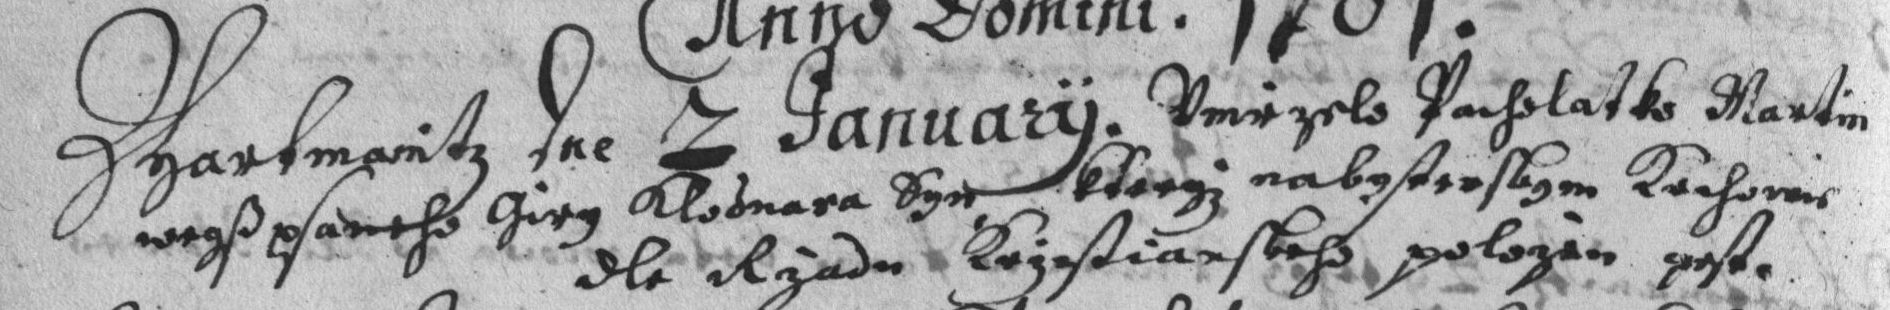 Anno Domini. 1701.
Z Hartmanitz Dne 2 Januarij. Umrzelo Pacholatko Martin
wegsspsaneho Girzy Klosnara Syn kteryz nabysterskym Krchowie
dle Rzadu Krzestianskeho polozen gest.